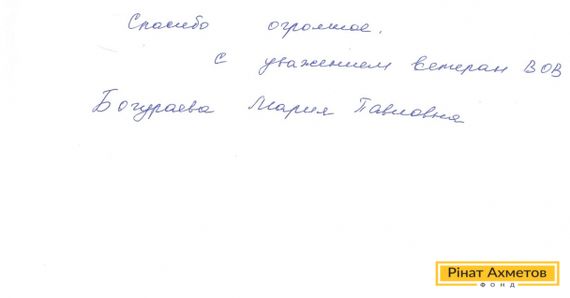 Спасибо огромное.
С уважением ветеран ВОВ
Богураева Мария Павловна
Рінат Ахметов
ФОНД